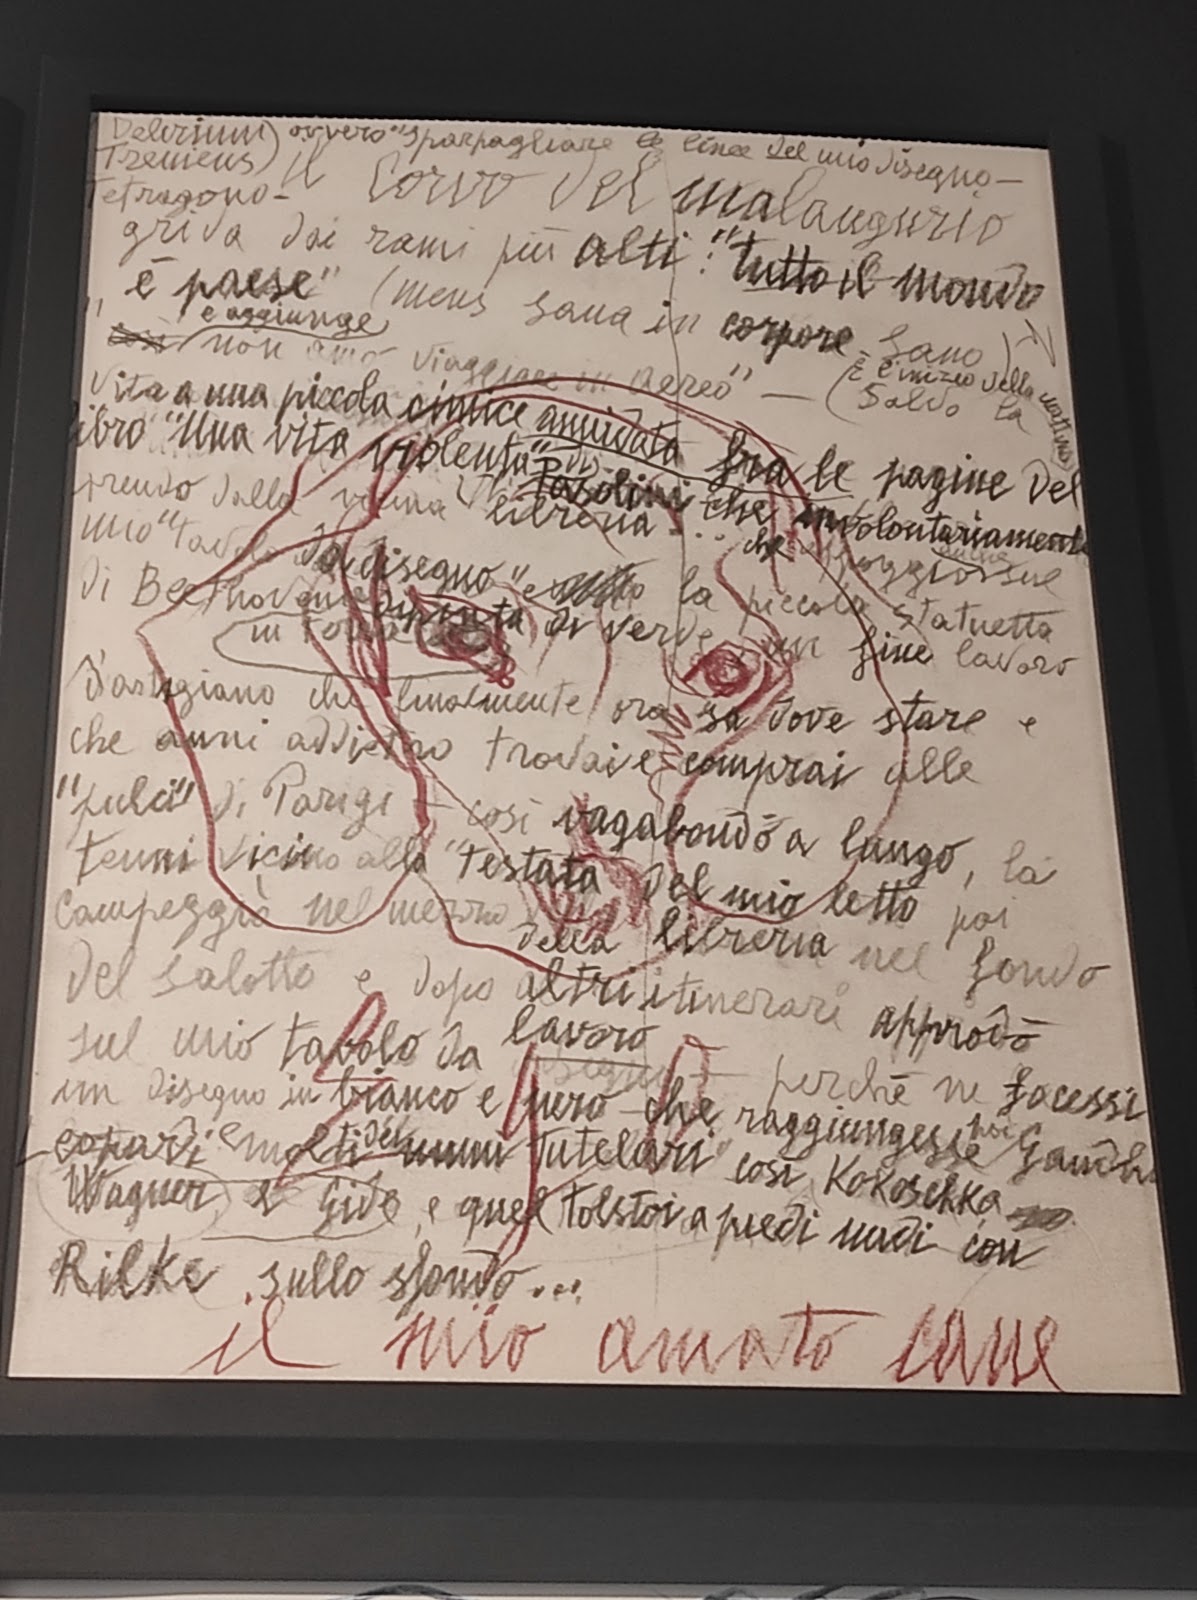 Delirium) ovvero "sparpagliare le linee del mio disegno —
Tremens) il Corvo del malaugurio
Tetragono -
grida dai rami più alti: "tutto il mondo
è paese" (mens sana in corpore sano)
" e aggiunge
non amo viaggiare in aereo" — (Salvo la
È l'inizio della mattina)
vita a una piccola cimice annidata fra le pagine del
libro "Una vita violenta" di Pasolini che involontariamente
prendo dalla vicina libreria ... che appoggio sul
mio "tavolo da disegno" e la piccola statuetta
anche
di Beethoven dipinta di verde un fine lavoro
in
d'artigiano che finalmente ora sa dove stare e
che anni addietro trovai e comprai alle
"pulci" di Parigi — così vagabondò a lungo, la
tenni vicino alla "testata del mio letto poi
campeggiò nel mezzo della libreria nel fondo
del salotto e dopo altri itinerari approdò
sul mio tavolo da lavoro
disegno — perché ne facessi
un disegno in bianco e nero che raggiungesse poi Gandhi
Leopardi e molti dei numi Tutelari" così Kokoschka
Wagner, e Gide, e quel Tolstoi a piedi nudi con
Rilke sullo sfondo...
il mio amato cane